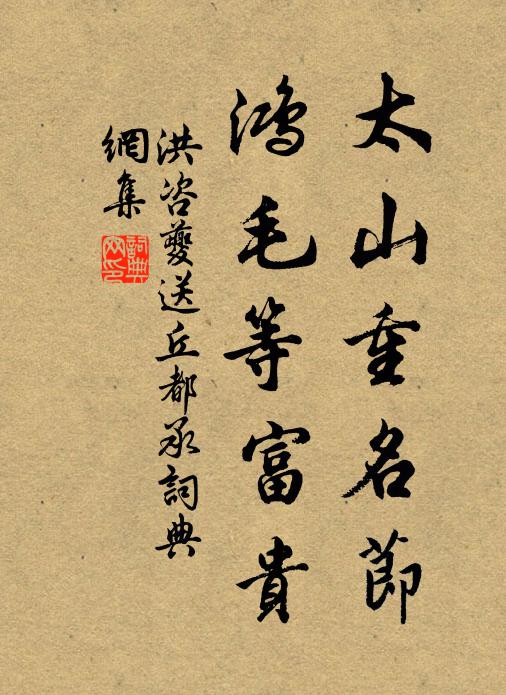 太山重名節
鴻毛等富貴
洪咨夔送丘都承詞典
網集
詞典網印